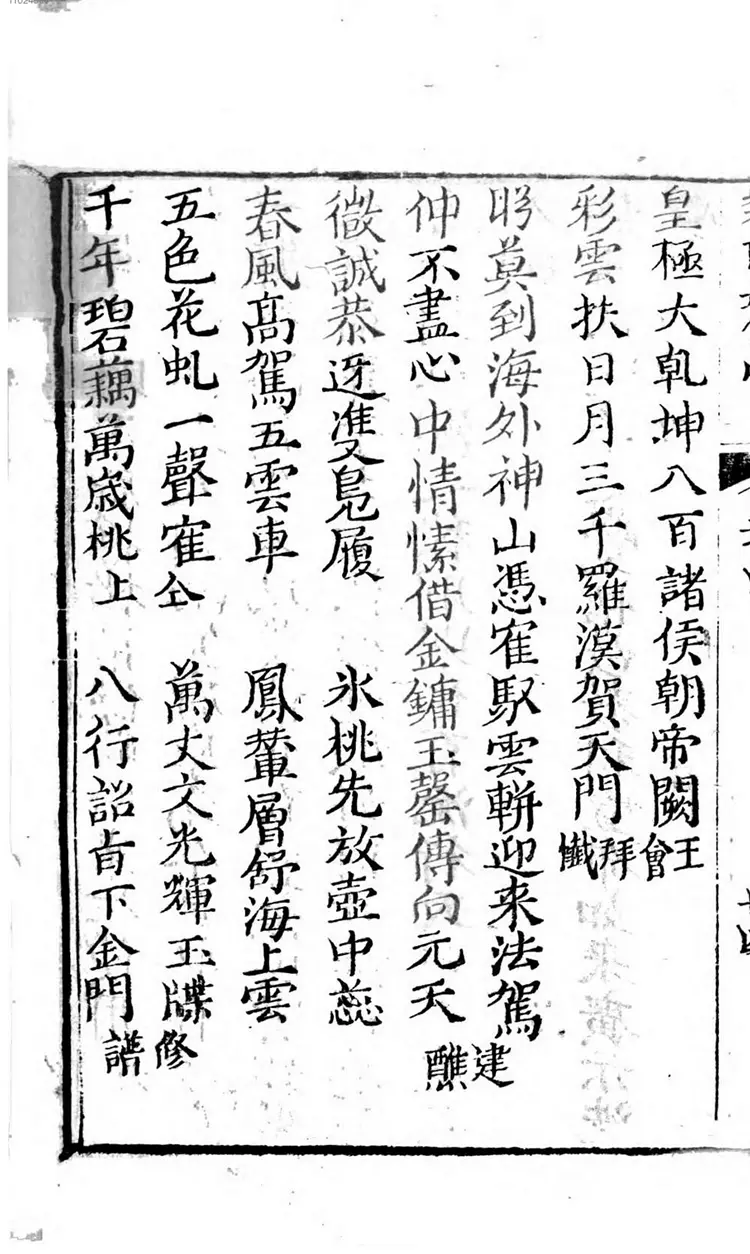 皇極大乹坤八百諸侯朝帝闕王會
彩雲扶日月三千羅漠賀天門拜懺
盻莫到海外神山憑寉馭雲軿迎来法駕建
仲不盡心中情愫借金鏞玉罄傳向元天醮
微誠恭迓雙凫履 氷桃先放壺中蕊
春風髙駕五雲車 鳳輦層舒海上雲
五色花虬一聲寉仝 萬丈文光輝玉牒修
千年碧藕萬歳桃上 八行詔㫖下金門譜